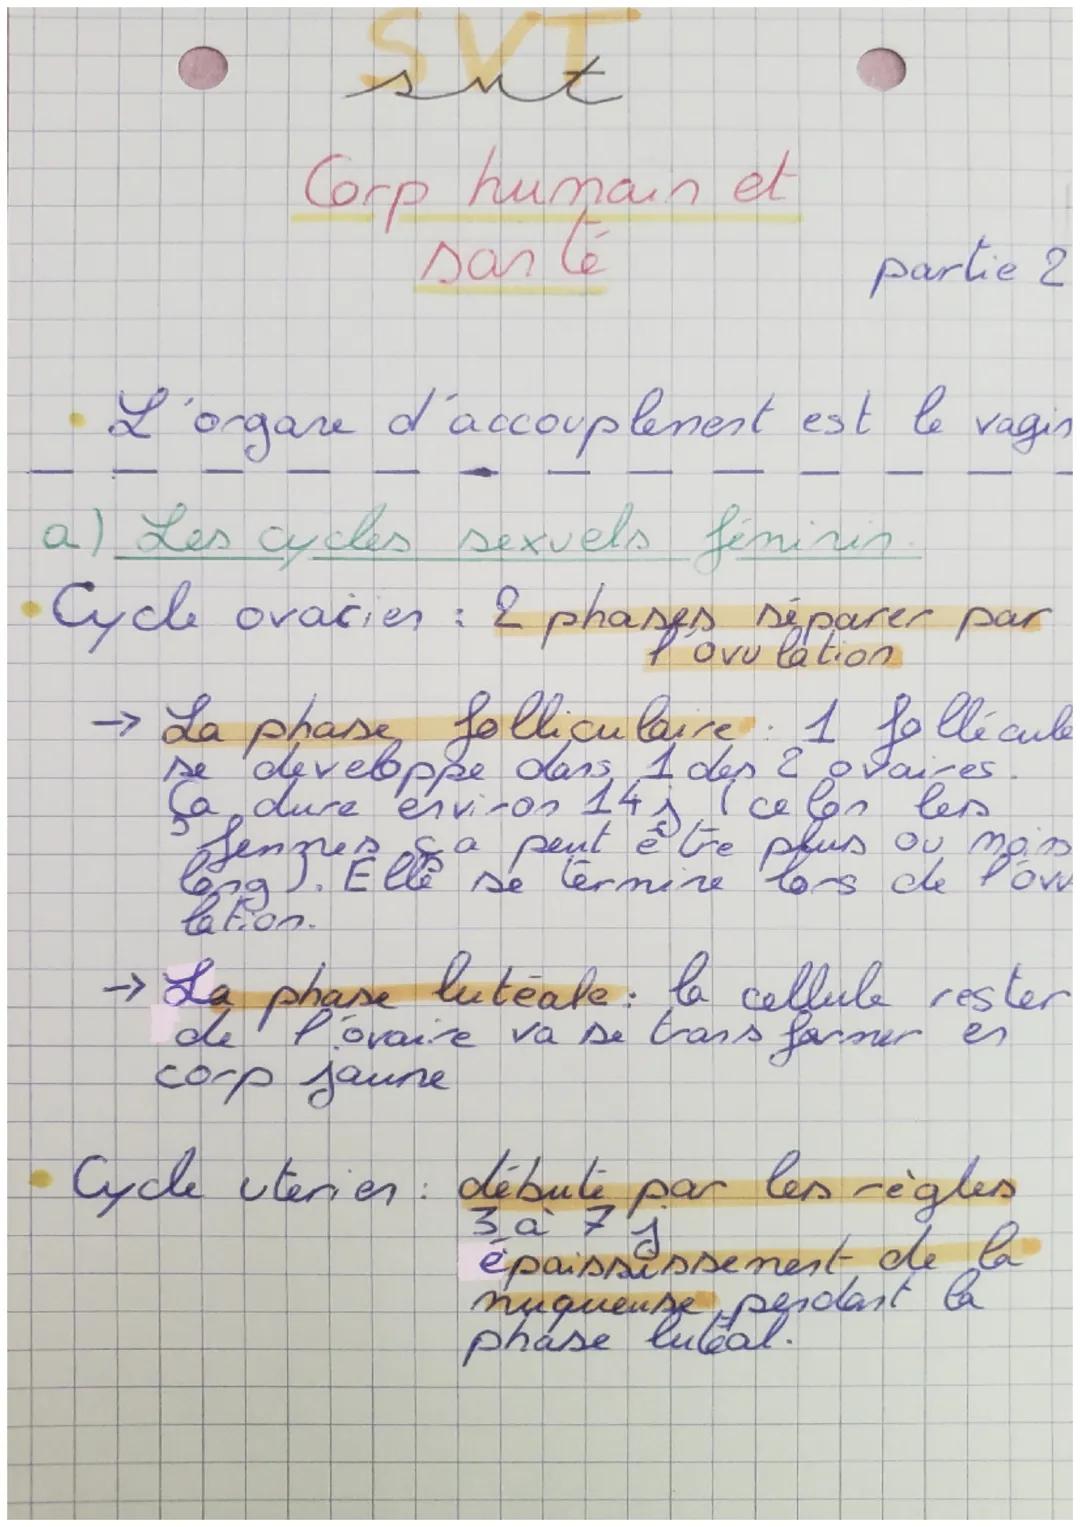 SVT
svt
Corp humain et
santé
partie 2
• L'organe d'accouplement est le vagin
a) Les cycles sexuels féminin.
• Cycle ovarien : 2 phases séparer par
l'ovulation
→ La phase folliculaire : 1 follécule
se développe dans 1 des 2 ovaires.
Ça dure environ 14 j (celon les
femmes ça peut être plus ou moins
long). Elle se termine lors de l'ovu
lation.
→ La phase lutéale : la cellule rester
de l'ovaire va se transformer en
corp jaune
• Cycle uterien : débute par les règles
3 à 7 j
épaississement de la
muqueuse pendant la
phase lutéal.